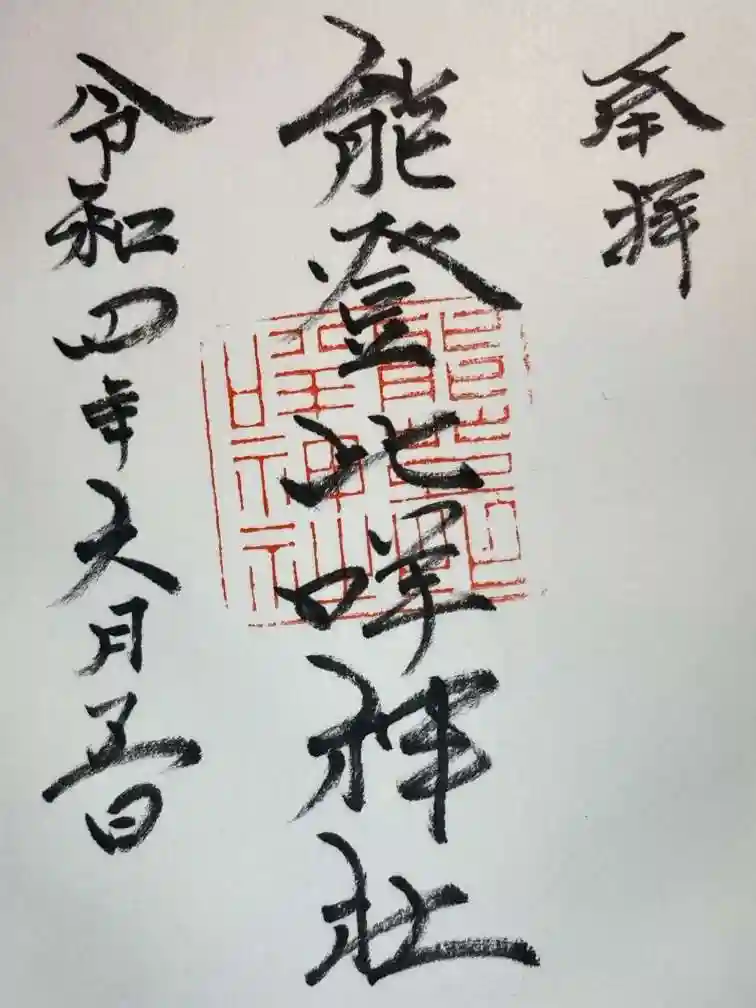 奉拝
能登比咩神社
令和四年六月五日